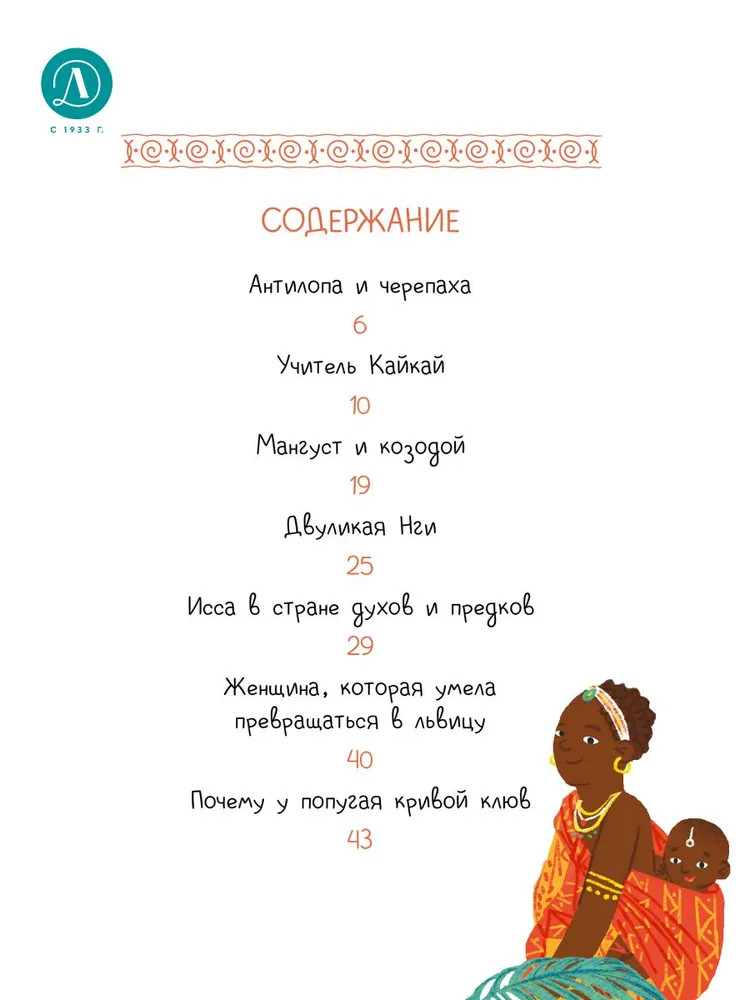 Л
С 1933 Г.
СОДЕРЖАНИЕ
Антилопа и черепаха
6
Учитель Кайкай
10
Мангуст и козодой
19
Двуликая Нги
25
Исса в стране духов и предков
29
Женщина, которая умела
превращаться в львицу
40
Почему у попугая кривой клюв
43